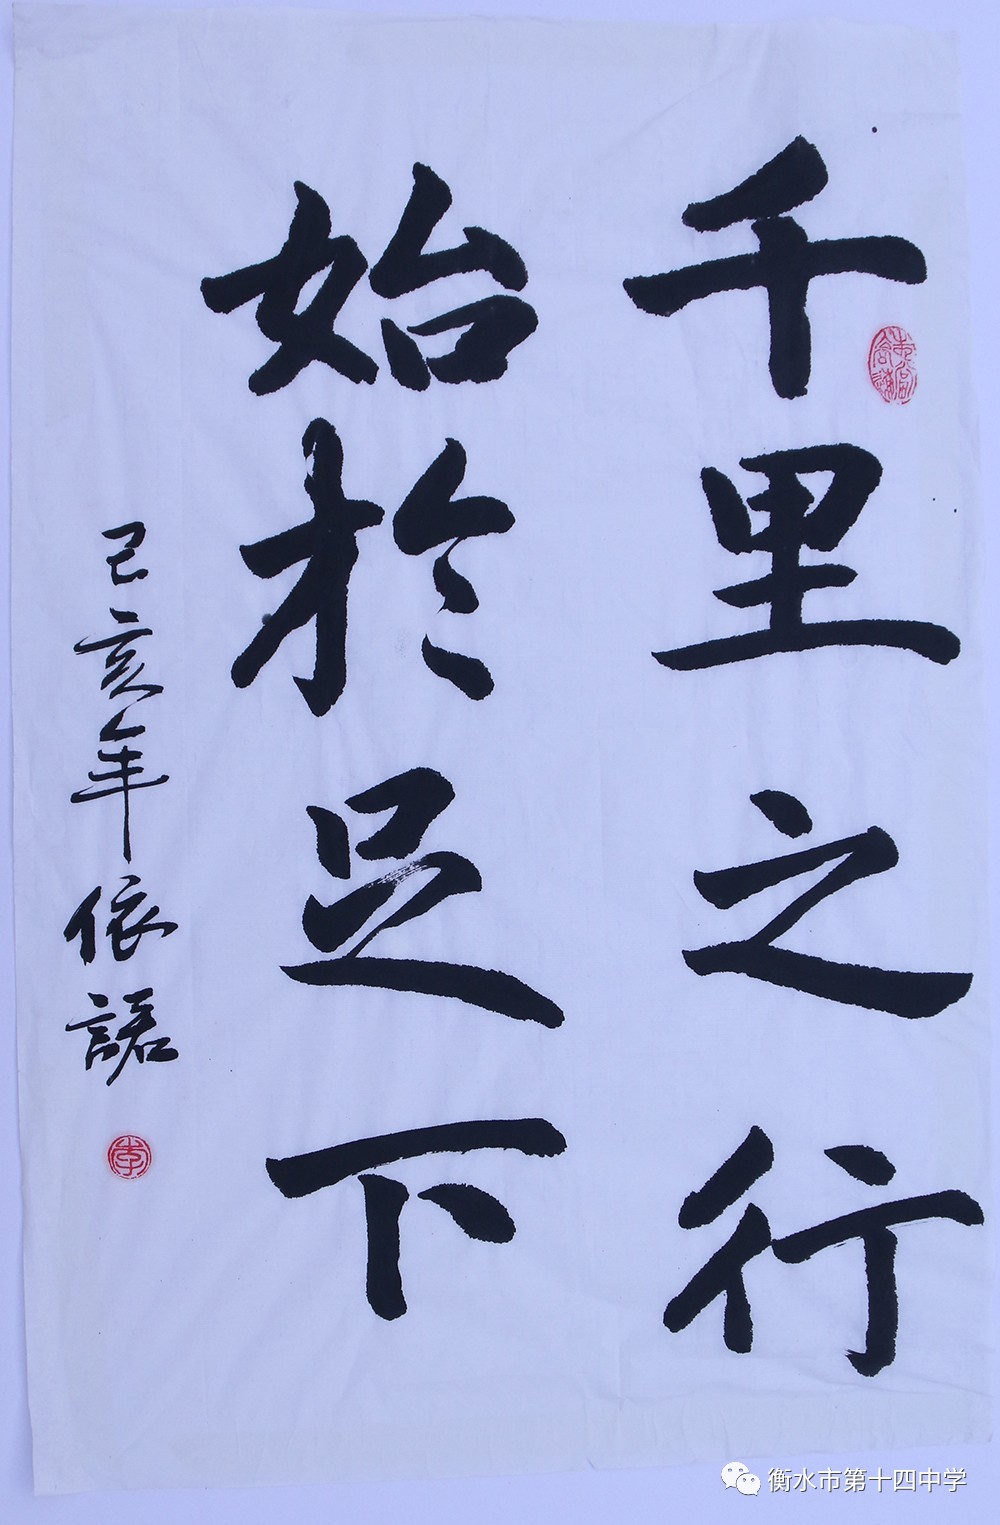 千里之行
始於足下
己亥年依諾
李
衡水市第十四中学